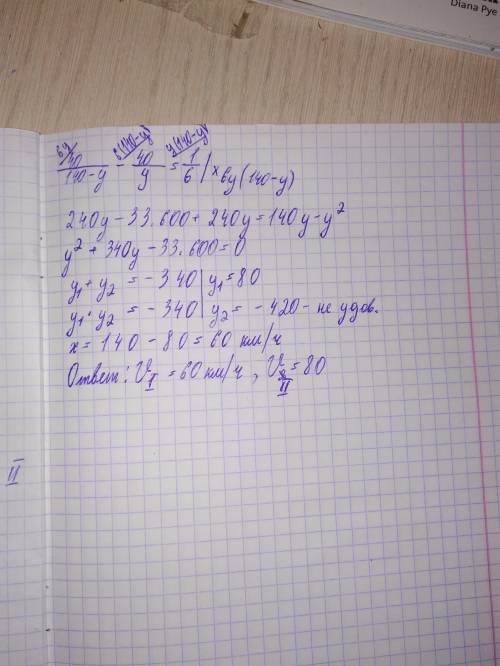 Diana Pye
6y 6(140-y) y(140-y)
40/(140-y) - 40/y = 1/6 | x 6y(140-y)
240y - 33.600 + 240y = 140y - y²
y² + 340y - 33.600 = 0
y₁ + y₂ = - 340 | y₁ = 80
y₁ · y₂ = - 340 | y₂ = - 420 - не удов.
x = 140 - 80 = 60 км/ч
Ответ: V_I = 60 км/ч, V_II = 80
II